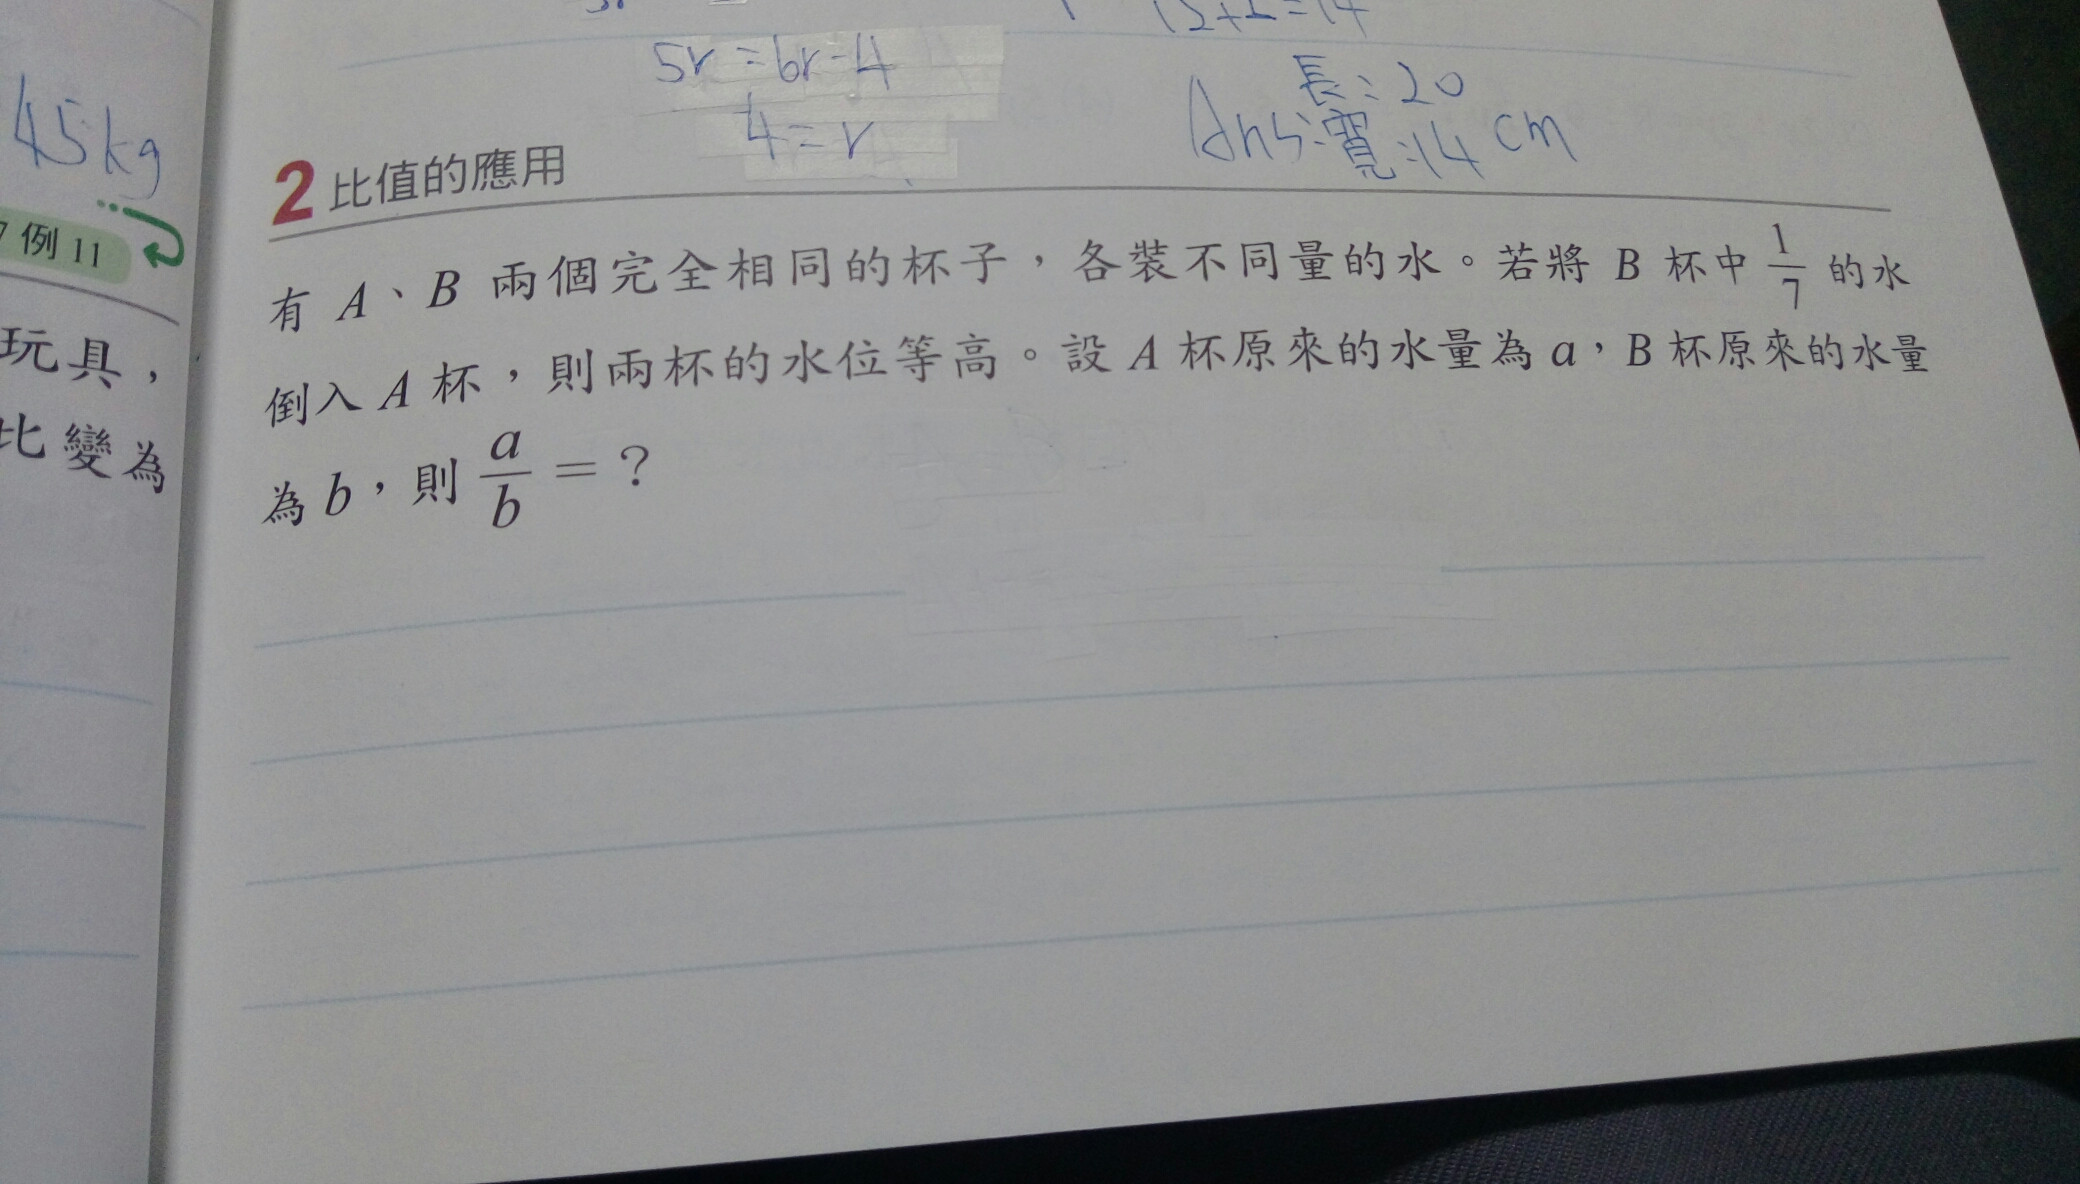 12+2=14
5r=6r-4
4=r
長:20
Ans:寬:14 cm
45kg
例 11
玩具，
比變為
2 比值的應用
有 A、B 兩個完全相同的杯子，各裝不同量的水。若將 B 杯中 1/7 的水
倒入 A 杯，則兩杯的水位等高。設 A 杯原來的水量為 a，B 杯原來的水量
為 b，則 a/b = ?